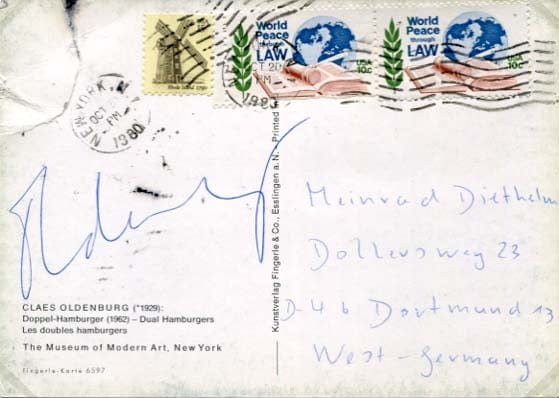 Rhode Island 1790
World Peace through LAW
USA 10c
World Peace through LAW
10c
NEW YORK, N.Y.
OCT
PM
1980
OCT 20
PM
1980
Oldenburg
CLAES OLDENBURG (*1929):
Doppel-Hamburger (1962) – Dual Hamburgers
Les doubles hamburgers
The Museum of Modern Art, New York
Fingerle-Karte 6597
Kunstverlag Fingerle & Co., Esslingen a. N. - Printed
Meinrad Diethelm
Dollersweg 23
D-46 Dortmund 13
West-Germany